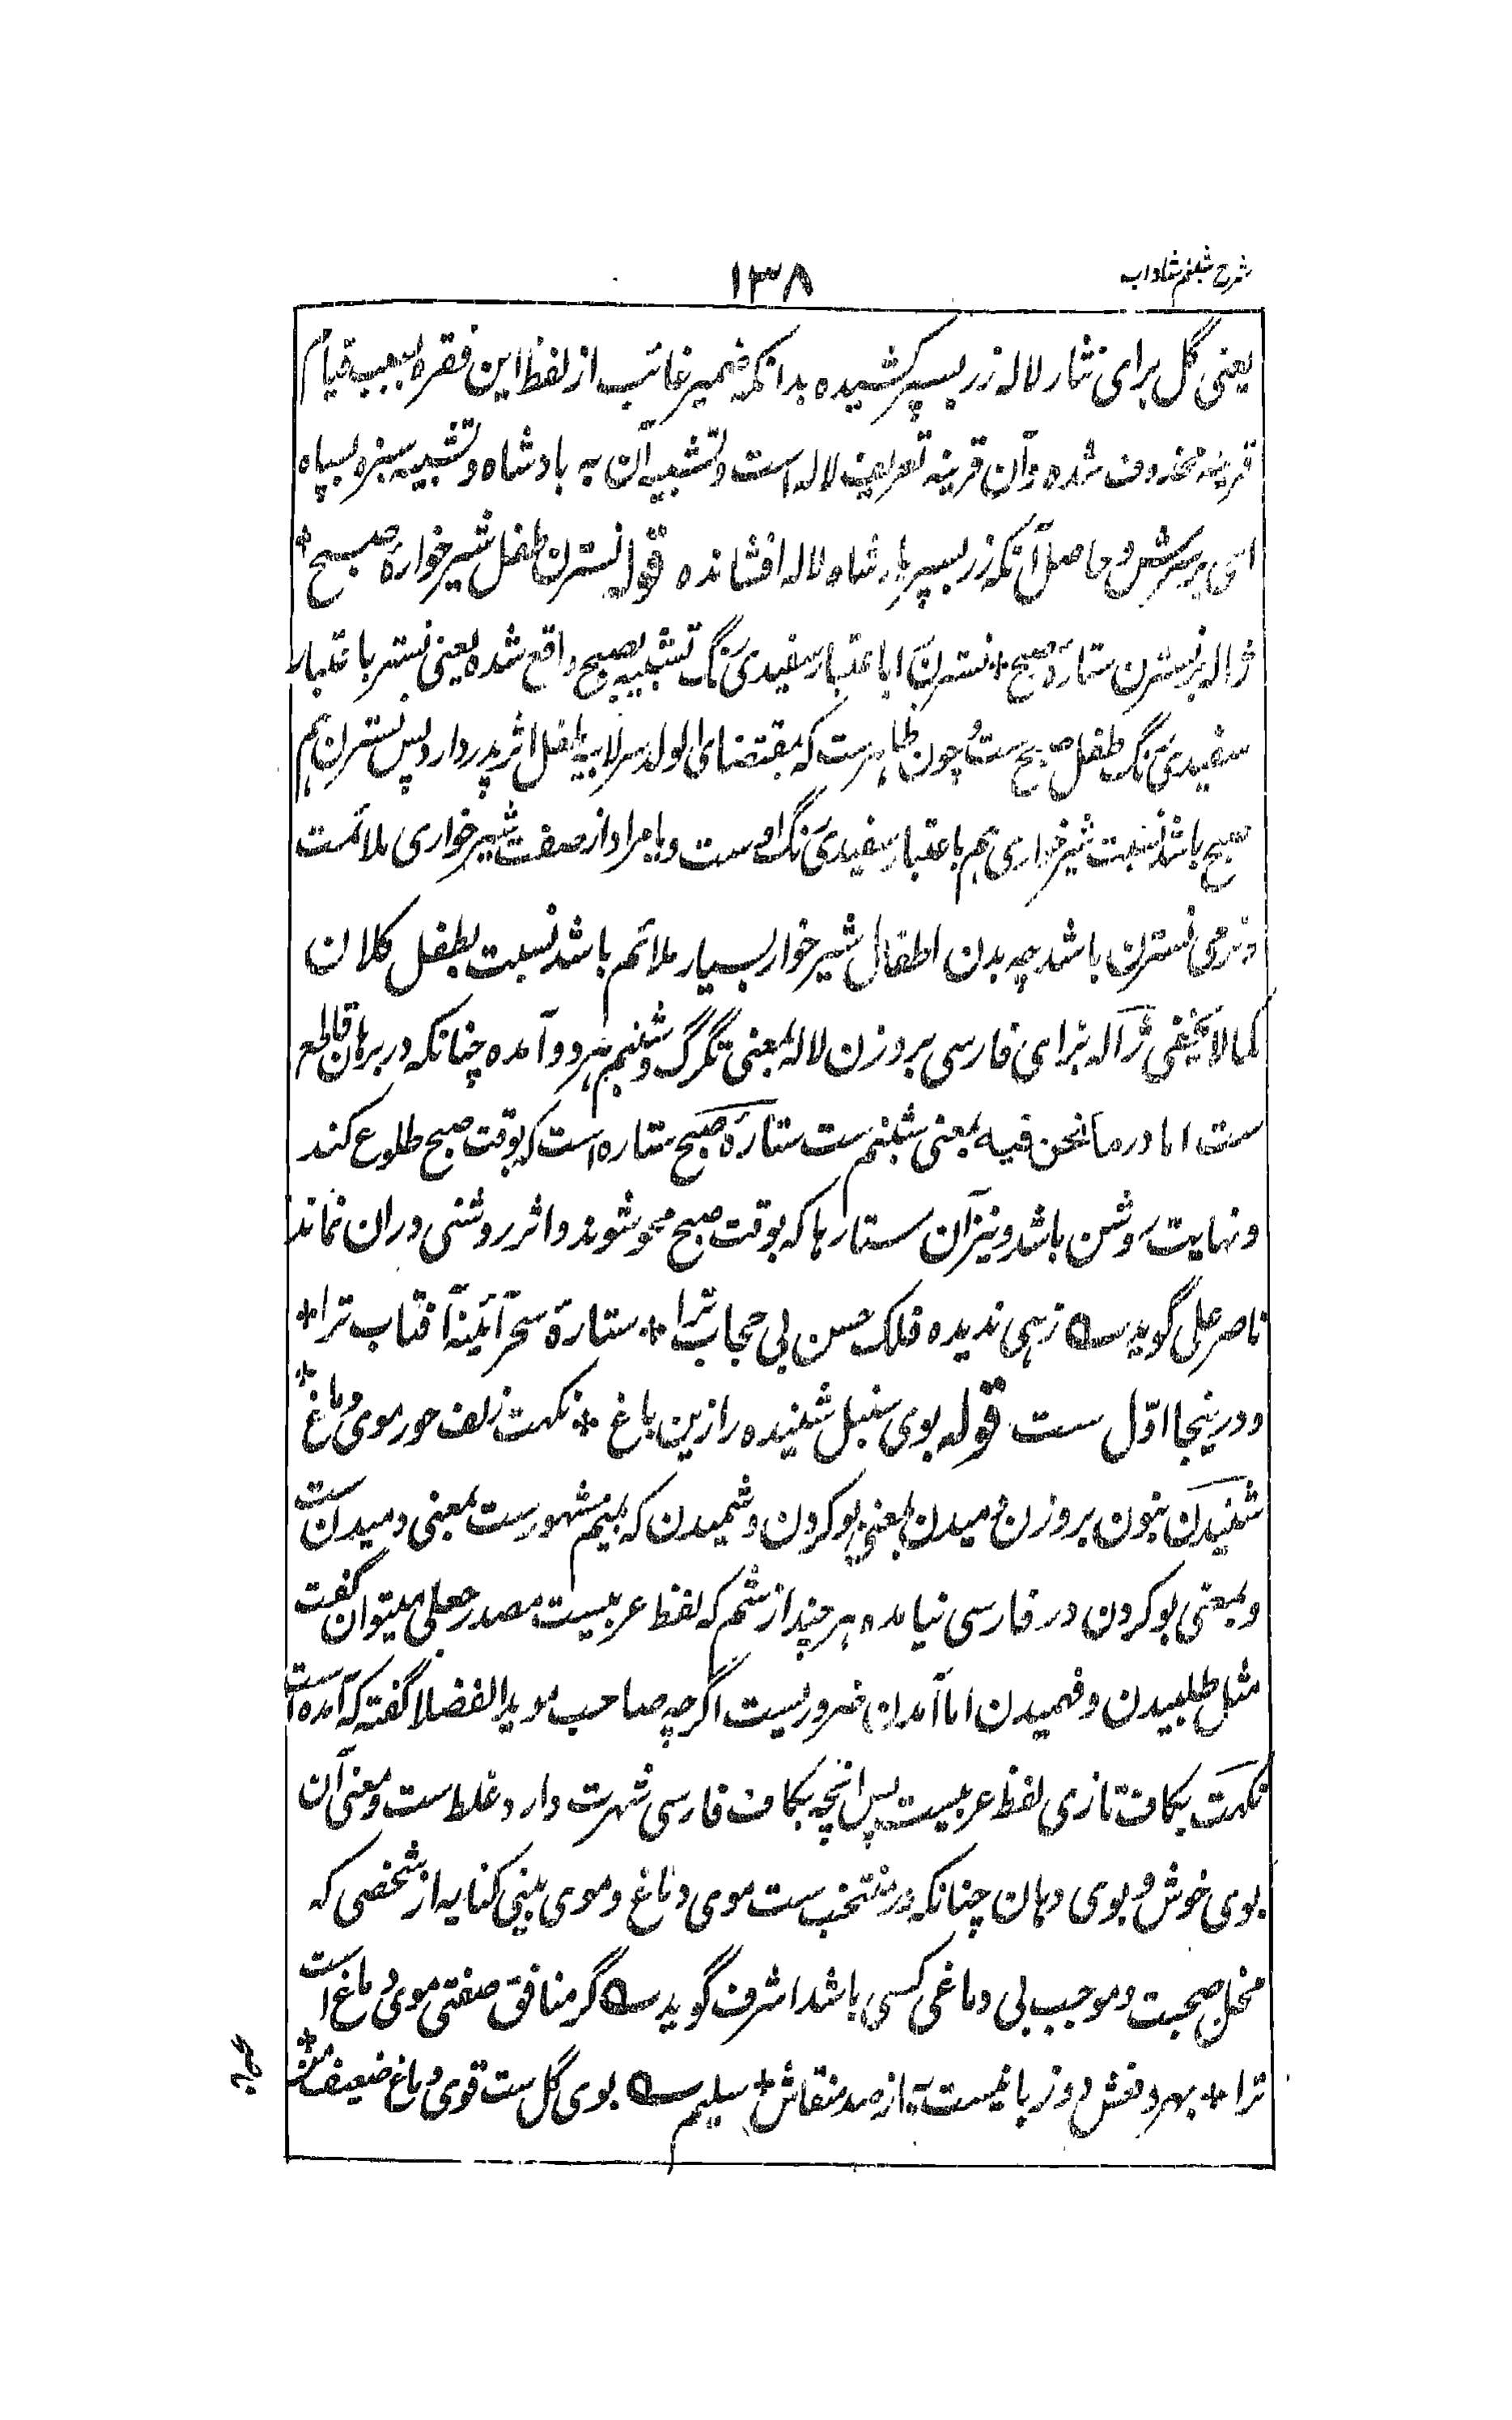 شرح شبنم شاداب
۱۳۸
یعنی گل برای نثار لاله زر بسپر کشیده بدانکه ضمیر غائب از لفظ این فقره بسبب قیام
قرینه محذوف شده وآن قرینه تعریف لاله است وتشبیه آن به بادشاه وتشبیه سبزه بسپاه
ای بر سرش وحاصل آنکه زر بسپر بادشاه لاله افشانده قوله نسترن طفل شیرخوارهٔ صبح *
ژاله بر نسترن ستارهٔ صبح * نسترن را باعتبار سفیدی رنگ تشبیه بصبح واقع شده یعنی نسترن باعتبار
سفیدی رنگ طفل صبح ست وچون ظاهرست که بمقتضای الولد سر لابیه طفل اثر پدر دارد پس نسترن هم
صبح باشد نسبت شیرخواری هم باعتبار سفیدی رنگ اوست ویا مراد از صفت شیرخواری ملائمت
ونرمی نسترن باشد چه بدن اطفال شیرخوار بسیار ملائم باشد نسبت بطفل کلان
کما لا یخفی ژاله بزای فارسی بروزن لاله بمعنی تگرگ وشبنم هر دو آمده چنانکه در برهان قاطع
ست اما در ما نحن فیه بمعنی شبنم ست ستارهٔ صبح ستاره است که بوقت صبح طلوع کند
ونهایت روشن باشد ونیز آن ستارها که بوقت صبح محو شوند واثر روشنی دران نماند
ناصر علی گوید ؎ زهی ندیده فلک حسن بی حجاب ترا * ستارهٔ سحر آئینهٔ آفتاب ترا *
ودرینجا اوّل ست قوله بوی سنبل شنیده را زین باغ * نکهت زلف حور موی دماغ *
شنیدن بنون بروزن دمیدن بمعنی بو کردن وشمیدن که بمیم مشهورست بمعنی دمیدن است
وبمعنی بو کردن در فارسی نیامده هر چند از شم که لفظ عربیست مصدر جعلی میتوان گفت
مثل طلبیدن وفهمیدن اما آمدن ضروریست اگرچه صاحب موید الفضلا گفته که آمده است
نکهت بکاف تازی لفظ عربیست پس انچه بکاف فارسی شهرت دارد غلط ست ومعنی آن
بوی خوش وبوی دهان چنانکه در منتخب ست موی دماغ وموی بینی کنایه از شخصی که
مخل صحبت وموجب بی دماغی کسی باشد اشرف گوید ؎ گر منافق صفتی موی دماغ است
ترا * بهر دفعش دو زبانیست به از صد منقاش * سلیم ؎ بوی گل ست قوی دماغ ضعیف